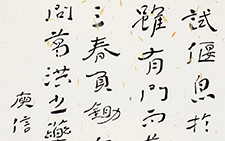 試偃息於
雖有門而
三春負鋤
問葛洪之藥
庾信